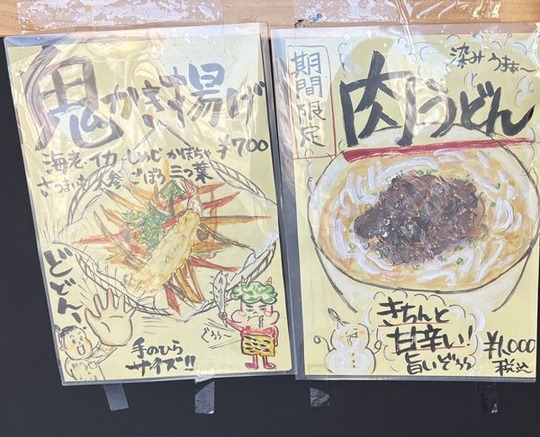 鬼かき揚げ
¥700
海老 イカ しめじ かぼちゃ
さつまいも 人参 ごぼう 三つ葉
どどん、
手のひら
サイズ!!
期間限定
染みうまぁ〜
肉うどん
きちんと
甘辛い!
旨いぞぅぅ
¥1,000
税込